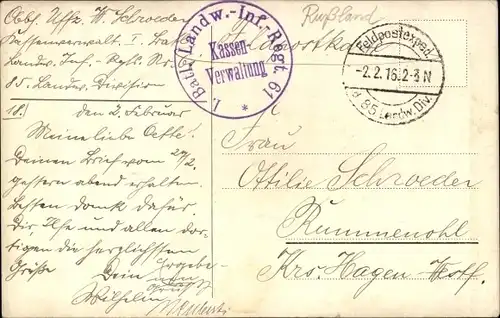 Abs. Uffz. W. Schroeder
Kassenverwalt. I. Batl.
Landw. Inf. Regts. Nr.
85. Landw. Division
Rußland
Feldpostkarte
I./Batl. Landw.-Inf.-Regt. 61
Kassen-
Verwaltung
*
Feldpostexped.
-2.2.18. 2-3 N
d. 85. Landw. Div.
18.) den 2. Februar
Meine liebe Oette!
Deinen Brief vom 27/2.
gestern abend erhalten.
Besten dank dafür.
Dir, Ilse und allen dor-
tigen die herzlichsten
Grüße Dein
Wilhelm
Frau
Ottilie Schroeder
Rummenohl
Krs. Hagen-Westf.